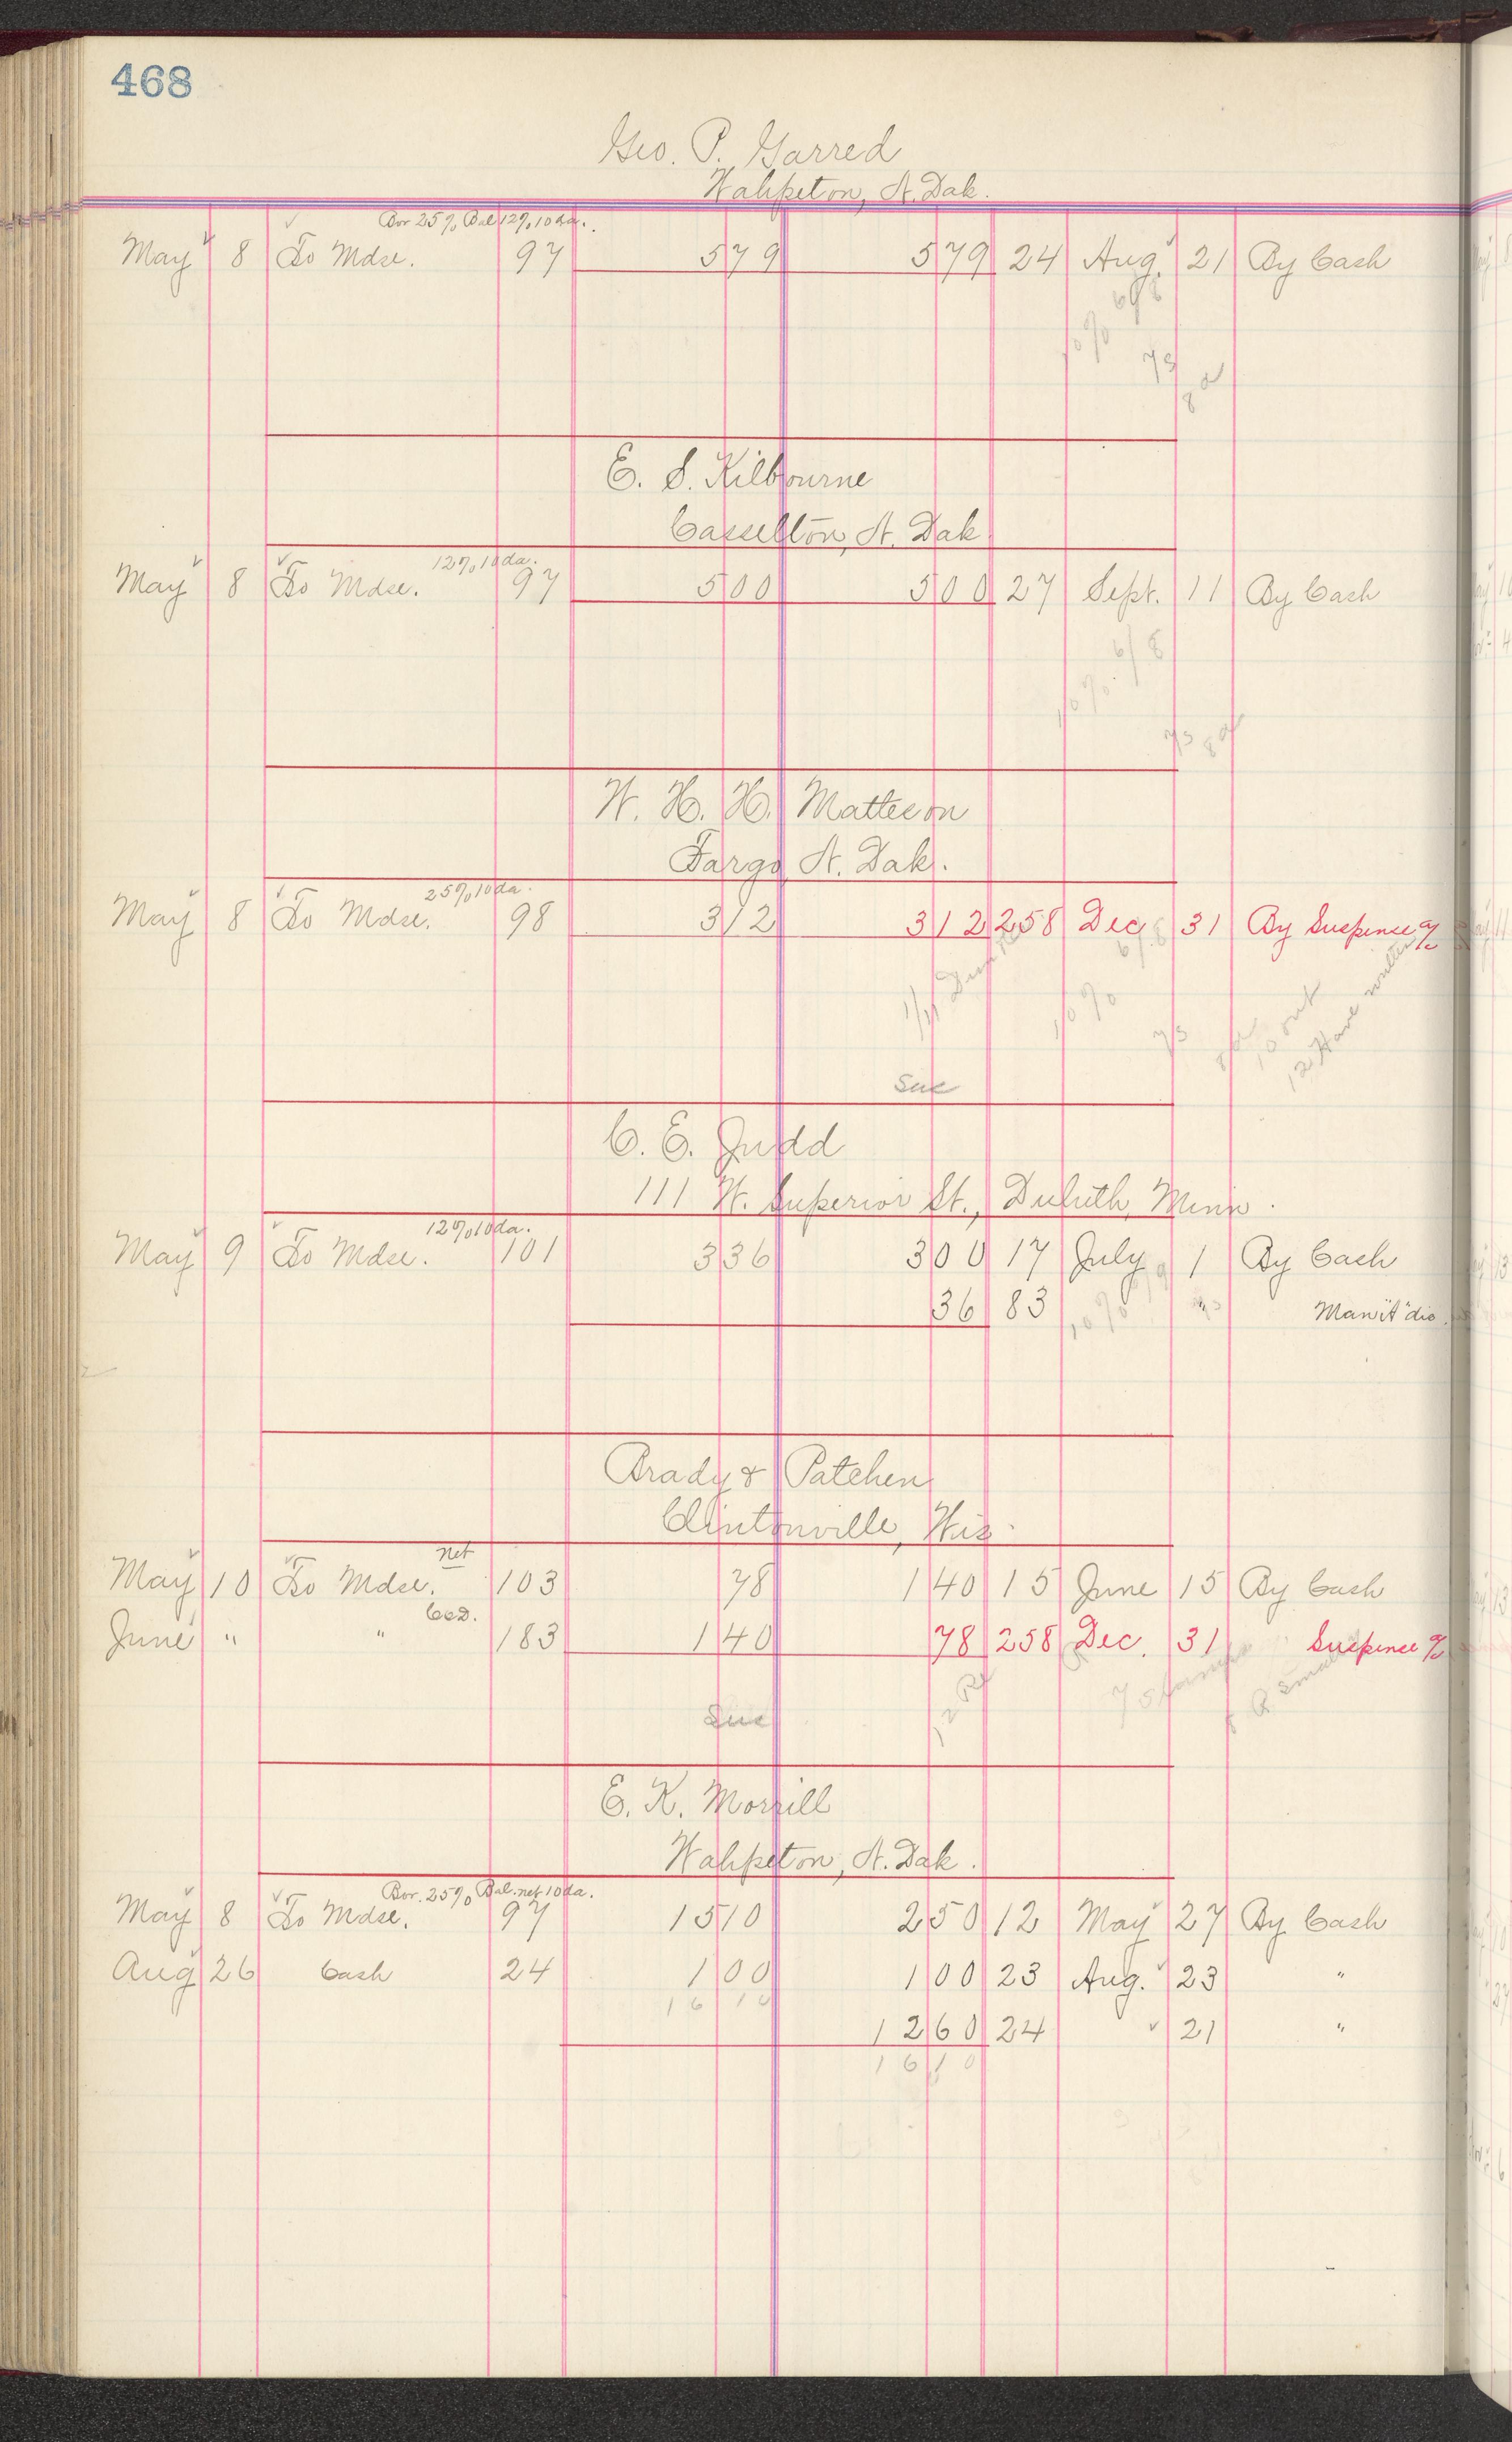 468
Geo. P. Garred
Wahpeton, N. Dak.
Bor 25% Bal 12% 10 da.
May 8 To Mdse. 97 5 79 5 79 24 Aug. 21 By Cash
6/8
10%
7/3
8
E. S. Kilbourne
Casselton, N. Dak
12% 10 da.
May 8 To Mdse. 97 5 00 5 00 27 Sept. 11 By Cash
6/8
10%
7/3
W. H. H. Matteson
Fargo N. Dak.
25% 10 da.
May 8 To Mdse. 98 3 12 3 12 258 Dec 31 By Suspense a/c
6/8
1/11
10%
7/3
10 out
12 Have written
Sue
C. E. Judd
111 W. Superior St., Duluth, Minn.
12% 10 da.
May 9 To Mdse. 101 3 36 3 00 17 July 1 By Cash
36 83 " Man't dis.
10%
Brady & Patchen
Clintonville, Wis.
net
May 10 To Mdse. 103 78 1 40 15 June 15 By Cash
C.O.D.
June " " 183 1 40 78 258 Dec. 31 Suspense a/c
Sue
E. K. Morrill
Wahpeton, N. Dak.
Bor. 25% Bal. net 10 da.
May 8 To Mdse. 97 15 10 2 50 12 May 27 By Cash
Aug 26 Cash 24 1 00 1 00 23 Aug. 23 "
16 10
12 60 24 21 "
16 10